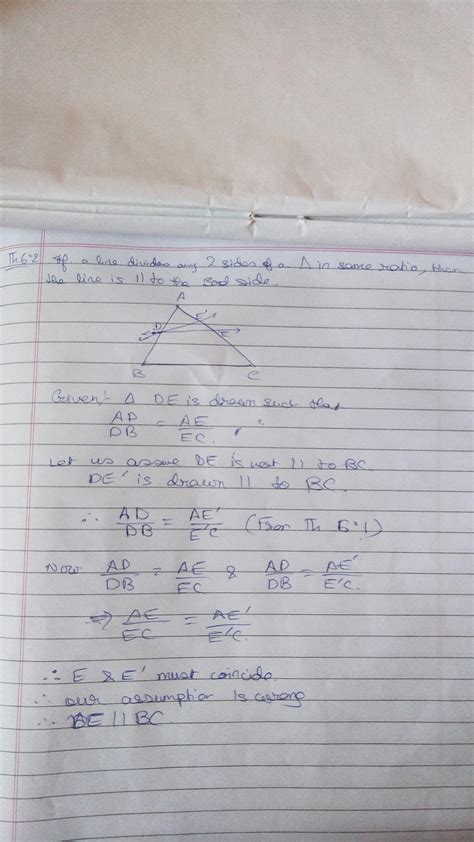 Th 6.2 If a line divides any 2 sides of a Δ in same ratio, then
the line is || to the 3rd side.
A
D E' E
B C
Given:- Δ DE is drawn such that
AD/DB = AE/EC.
Let us assume DE is not || to BC
DE' is drawn || to BC.
∴ AD/DB = AE'/E'C (From Th 6.1)
Now AD/DB = AE/EC & AD/DB = AE'/E'C.
⇒ AE/EC = AE'/E'C.
∴ E & E' must coincide.
∴ our assumption is wrong
∴ DE || BC.